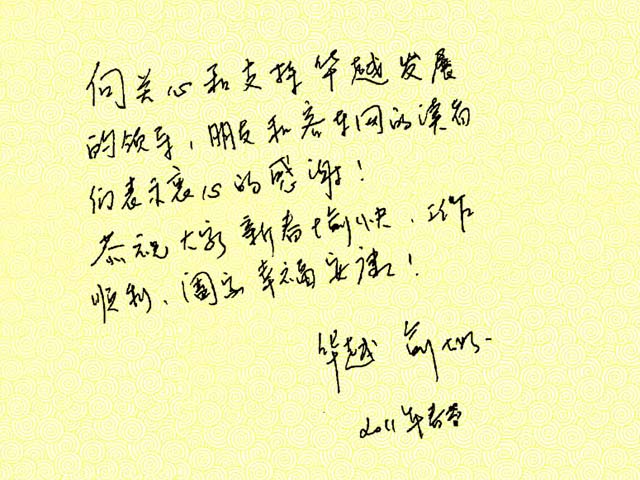 向关心和支持华越发展
的领导,朋友和客车网的读者
们表示衷心的感谢!
恭祝大家新春愉快、工作
顺利、阖家幸福安康!
华越
2011年春节